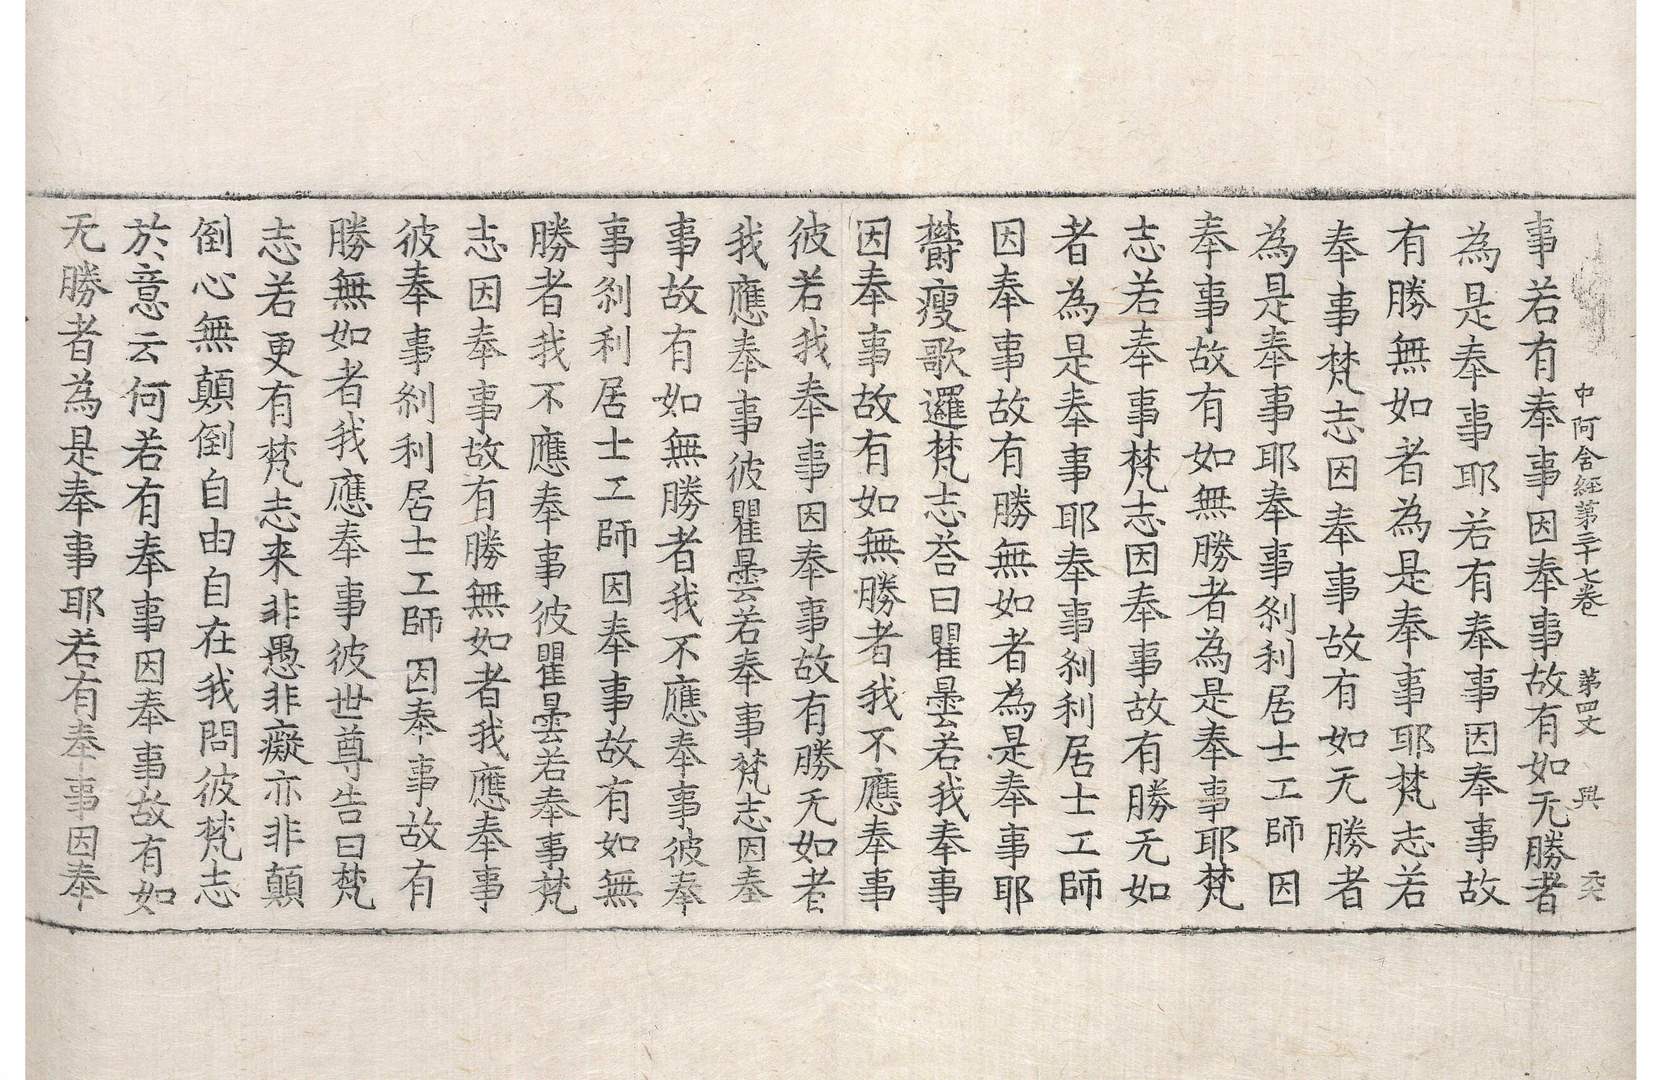 中阿含經第三十七卷 第四丈 興
事若有奉事因奉事故有如无勝者
為是奉事耶若有奉事因奉事故
有勝無如者為是奉事耶梵志若
奉事梵志因奉事故有如无勝者
為是奉事耶奉事刹利居士工師因
奉事故有如無勝者為是奉事耶梵
志若奉事梵志因奉事故有勝无如
者為是奉事耶奉事刹利居士工師
因奉事故有勝無如者為是奉事耶
欝瘦歌邏梵志荅曰瞿曇若我奉事
因奉事故有如無勝者我不應奉事
彼若我奉事因奉事故有勝无如者
我應奉事彼瞿曇若奉事梵志因奉
事故有如無勝者我不應奉事彼奉
事刹利居士工師因奉事故有如無
勝者我不應奉事彼瞿曇若奉事梵
志因奉事故有勝無如者我應奉事
彼奉事刹利居士工師因奉事故有
勝無如者我應奉事彼世尊告曰梵
志若更有梵志来非愚非癡亦非顛
倒心無顛倒自由自在我問彼梵志
於意云何若有奉事因奉事故有如
无勝者為是奉事耶若有奉事因奉